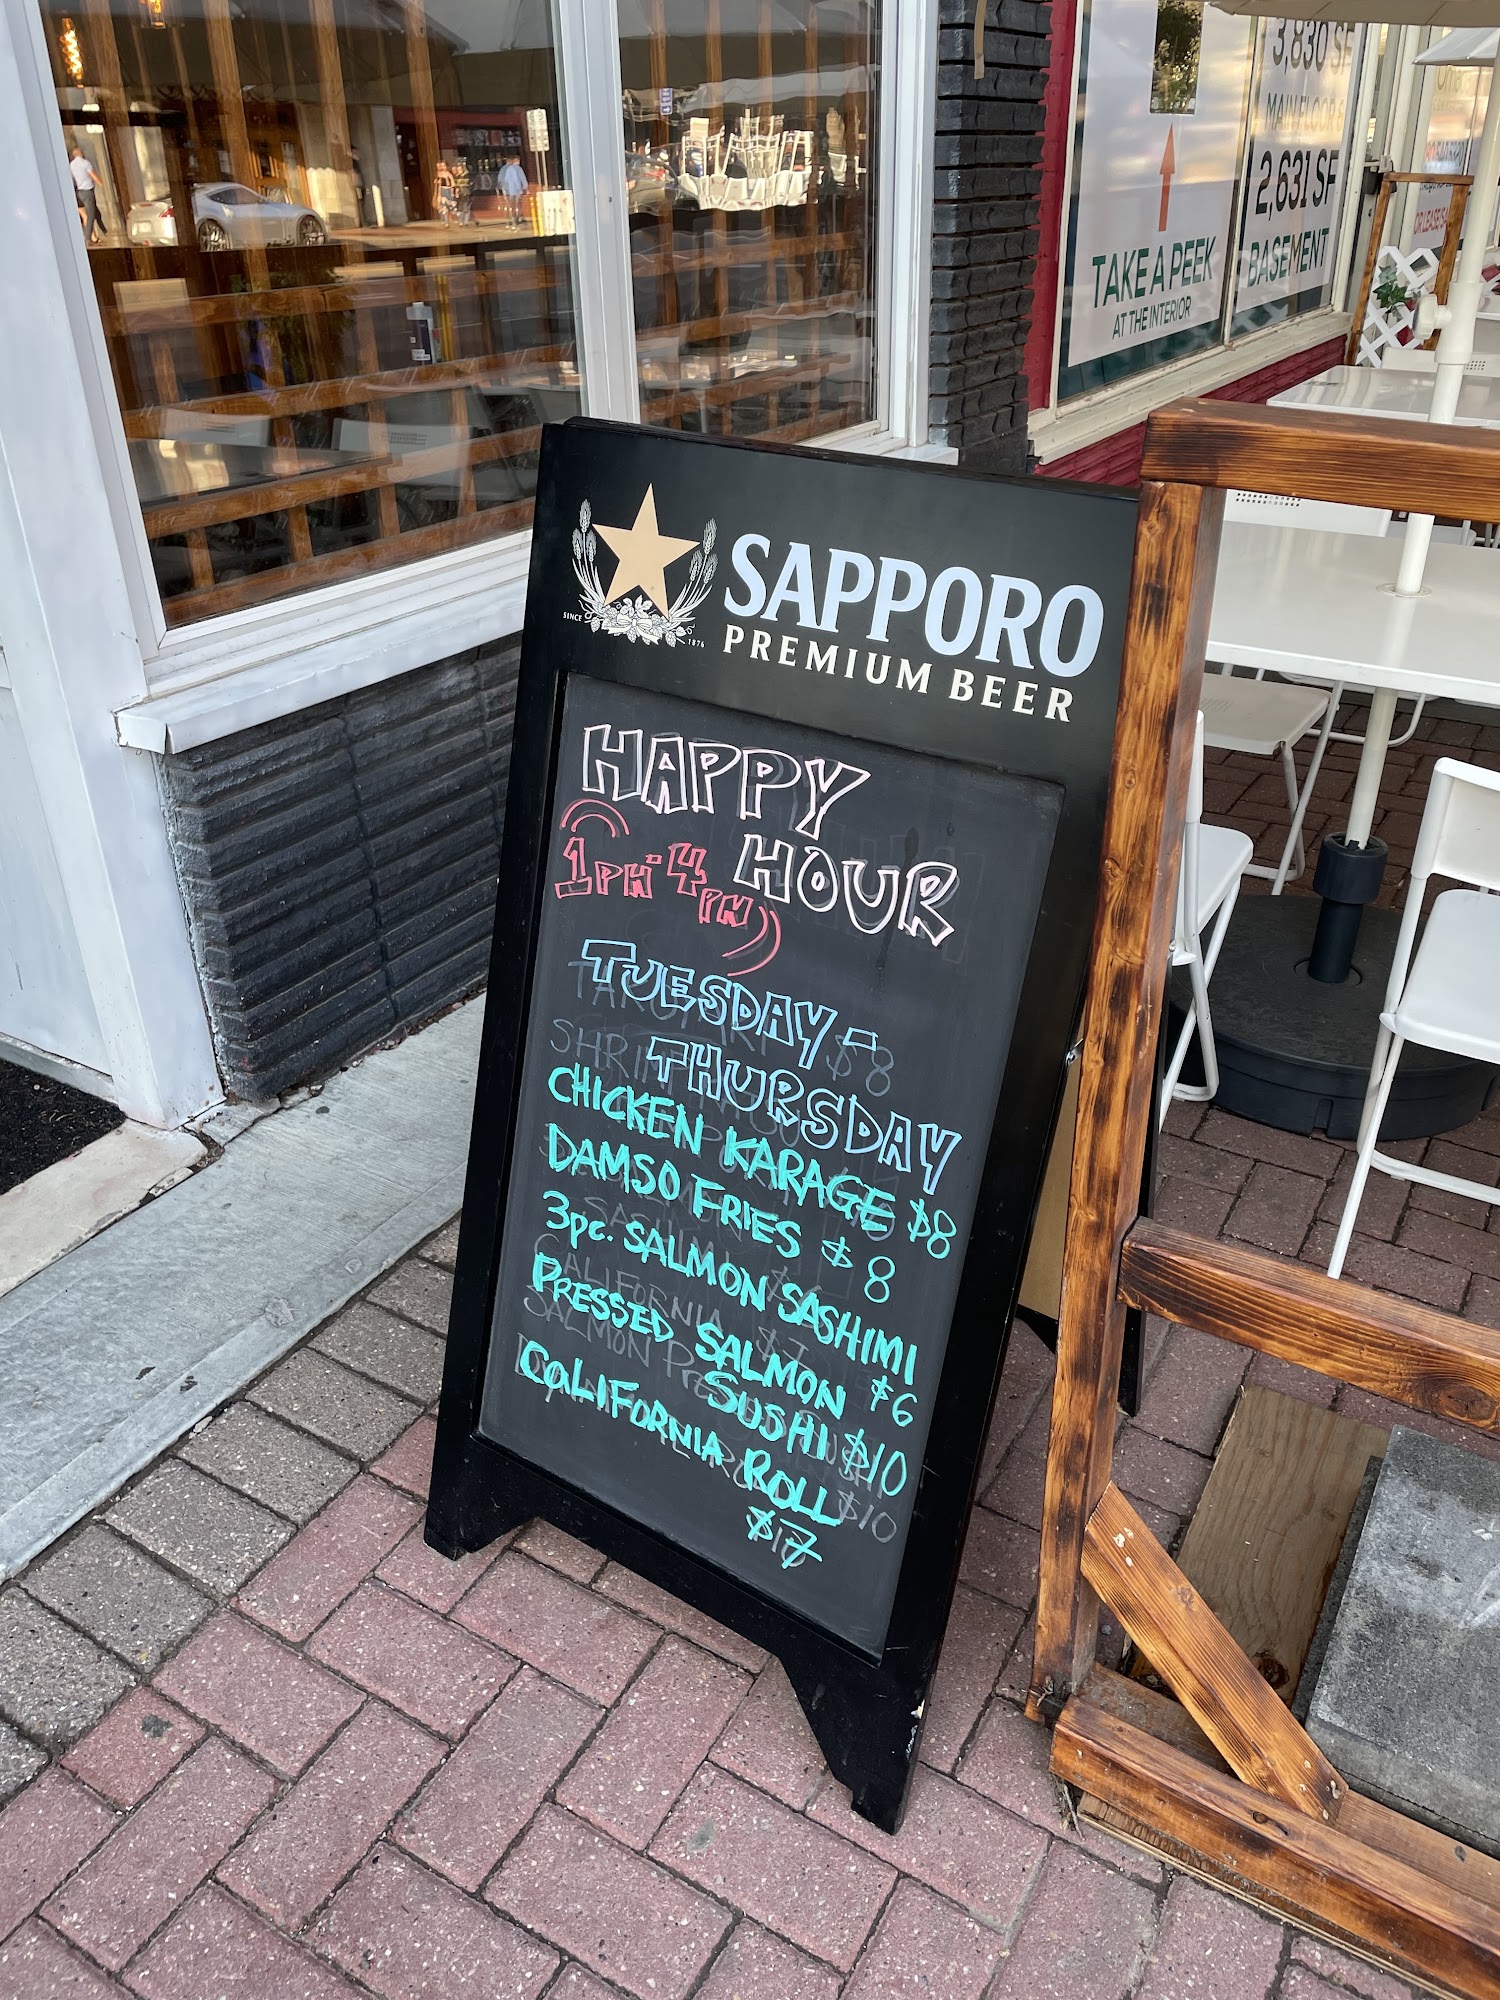 3,830 SF
MAIN FLOOR
2,631 SF
BASEMENT
TAKE A PEEK
AT THE INTERIOR
SAPPORO
PREMIUM BEER
SINCE
1876
HAPPY
HOUR
1PM-4PM
TUESDAY-
THURSDAY
CHICKEN KARAGE $8
DAMSO FRIES $8
3pc. SALMON SASHIMI
$6
PRESSED SALMON
SUSHI $10
CALIFORNIA ROLL
$7